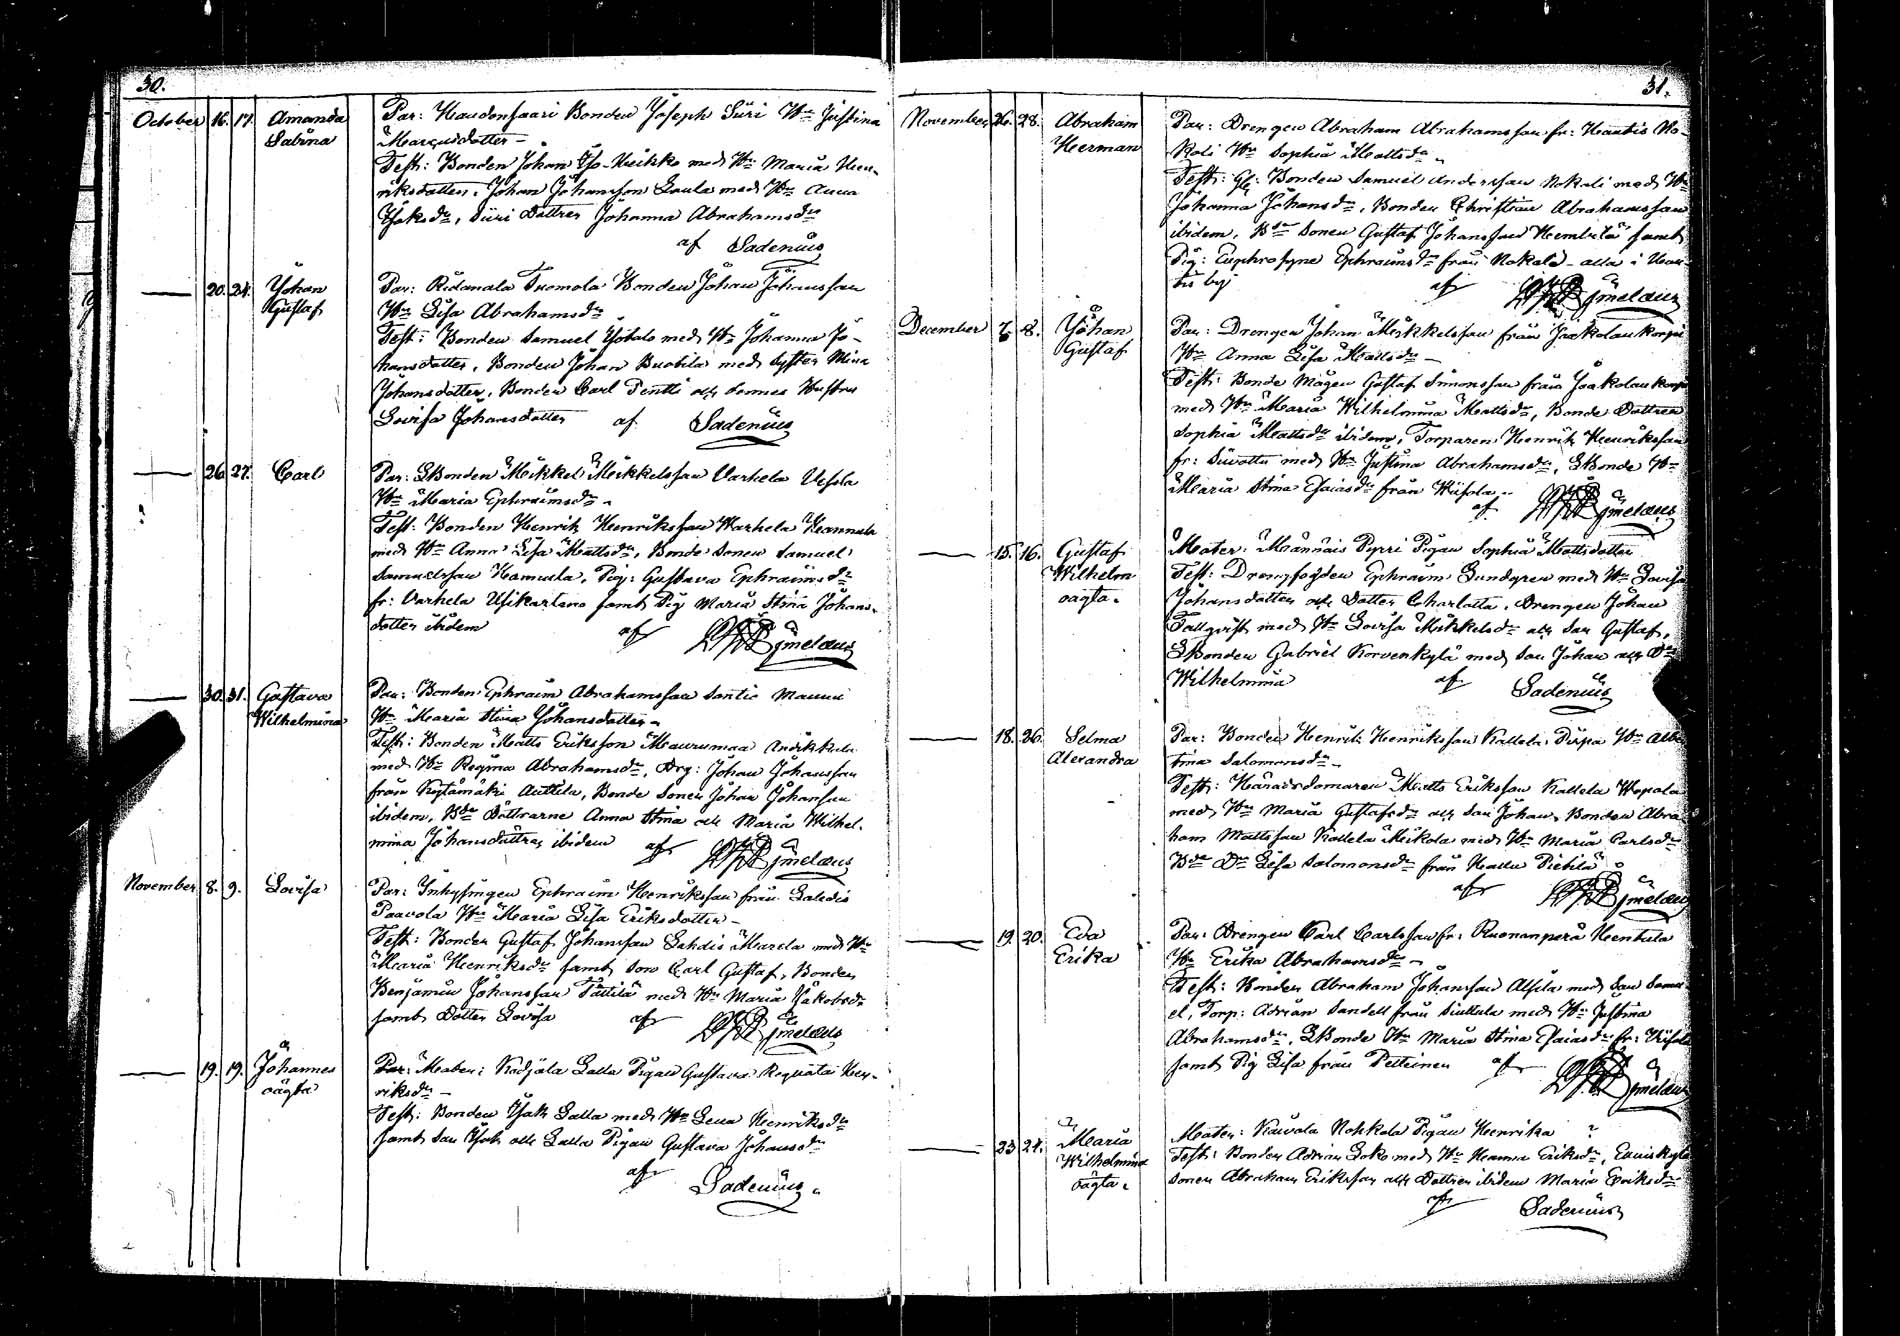 30.
October 16. 17. Amanda Sabina
Par: Haudonsaari Bonden Joseph Siiri Hu Justina
Marcusdotter
Test: Bonden Johan Iso-Heikko med Hu Maria Hen-
riksdotter, Johan Johansson Laula med Hu Anna
Isaksdr, Siiri Dottren Johanna Abrahamsdr
af Sadenius
20. 21. Johan Gustaf
Par: Ridamala Tuomola Bonden Johan Johansson
Hu Lisa Abrahamsdr
Test: Bonden Samuel Yöbalo med Hu Johanna Jo-
hansdotter, Bonden Johan Buobila med Syster Mina
Johansdotter, Bonden Carl Pentti och dennes Hustru
Lovisa Johansdotter af Sadenius
26. 27. Carl
Par: LBonden Mikkel Mikkelsson Varhela Vesola
Hu Maria Ephraimsdr
Test: Bonden Henrik Henriksson Warhela Hannula
med Hu Anna Lisa Mattsdr, Bonde Sonen Samuel
Samuelsson Hannula, Pig: Gustava Ephraimsdr
fr: Varhela Usikartano samt Pig Maria Stina Johans-
dotter ibidem af Imelæus
30. 31. Gustava Wilhelmina
Par: Bonden Ephraim Abrahamsson Santio Mannu
Hu Maria Stina Johansdotter
Test: Bonden Matts Eriksson Maurumaa Anikkula
med Hu Regina Abrahamsdr, Drg: Johan Johansson
från Kylämäki Anttila, Bonde Sonen Johan Johansson
ibidem, Bde Döttrarne Anna Stina och Maria Wilhel-
mina Johansdöttrar ibidem af Imelæus
November 8. 9. Lovisa
Par: Inhysingen Ephraim Henriksson från Saledis
Paavola Hu Maria Lisa Eriksdotter
Test: Bonden Gustaf Johansson Lahdis Marela med Hu
Maria Henriksdr samt Son Carl Gustaf, Bonden
Benjamin Johansson Tättilä med Hu Maria Jakobsdr
samt Dotter Lovisa af Imelæus
19. 19. Johannes oägta
Par: Mater: Kodjala Lalla Pigan Gustava Regnata Hen-
riksdr
Test: Bonden Isak Lalla med Hu Lena Henriksdr
samt Son Isak och Lalla Pigan Gustava Johansdr
af
Sadenius.
31.
November 26. 28. Abraham Herman
Par: Drengen Abraham Abrahamsson fr: Hautis No-
koli Hu Sophia Mattsdr
Test: Gl: Bonden Samuel Andersson Nokoli med Hu
Johanna Johansdr, Bonden Christian Abrahamsson
ibidem, Bde Sonen Gustaf Johansson Heinbila samt
Pig: Euphrosyne Ephraimsdr från Nokola - alla i Hau-
tis by af Imelæus
December 7 8. Johan Gustaf
Par: Drengen Johan Mikkelsson från Jaakolankorpi
Hu Anna Lisa Mattsdr
Test: Bonde Mågen Gustaf Simonsson från Jaakolankorpi
med Hu Maria Wilhelmina Mattsdr, Bonde Dottren
Sophia Mattsdr ibidem, Torparen Henrik Henriksson
fr: Sivatta med Hu Justina Abrahamsdr, LBonde Hu
Maria Stina Esaiasdr från Wiisola
af Imelæus
15. 16. Gustaf Wilhelm oägta.
Mater: Männäis Pyri Pigan Sophia Mattsdotter
Test: Drengfogden Ephraim Lundgren med Hu Lovisa
Johansdotter och Dotter Charlotta, Drengen Johan
Tallqvist med Hu Lovisa Mikkelsdr och Son Gustaf,
LBonden Gabriel Korvenkylä med Son Johan och Dr
Wilhelmina af Sadenius
18. 26. Selma Alexandra
Par: Bonden Henrik Henriksson Kallela Pispa Hu Alber-
tina Salomonsdr
Test: Häradsdomaren Matts Eriksson Kallela Wepola
med Hu Maria Gustafsdr och Son Johan, Bonden Abra-
ham Mattsson Kallela Mikola med Hu Maria Carlsdr
Bde Dr Lisa Salomonsdr från Hallu Pietila
af Imelæus
19. 20. Eva Erika
Par: Drengen Carl Carlsson fr: Ruonanperä Heentula
Hu Erika Abrahamsdr
Test: Bonden Abraham Johansson Alsila med Son Samu-
el, Torp: Adrian Sandell från Siuttala med Hu Justina
Abrahamsdr, LBonde Hu Maria Stina Esaiasdr fr: Wiisola
samt Pig Lisa från Pelteinen af Imelæus
23 24. Maria Wilhelmina oägta.
Mater: Kaivola Nohkola Pigan Henrika ?
Test: Bonden Adrian Soko med Hu Hanna Eriksdr,
Sonen Abraham Eriksson och Dottren ibidem Maria Eriksdr
af Sadenius